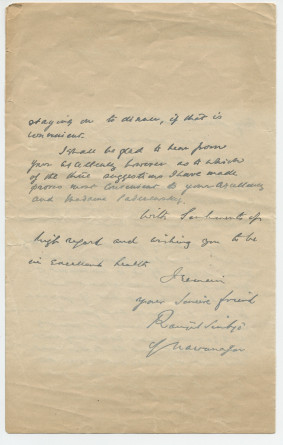 staying on to dinner, if that is
convenient.
I shall be glad to hear from
your Excellency however as to which
of the three suggestions I have made
proves most convenient to your Excellency
and Madame Paderewski.
With Sentiments of
high regard and wishing you to be
in excellent health
I remain
your sincere friend
Ranjitsinhji
of Nawanagar